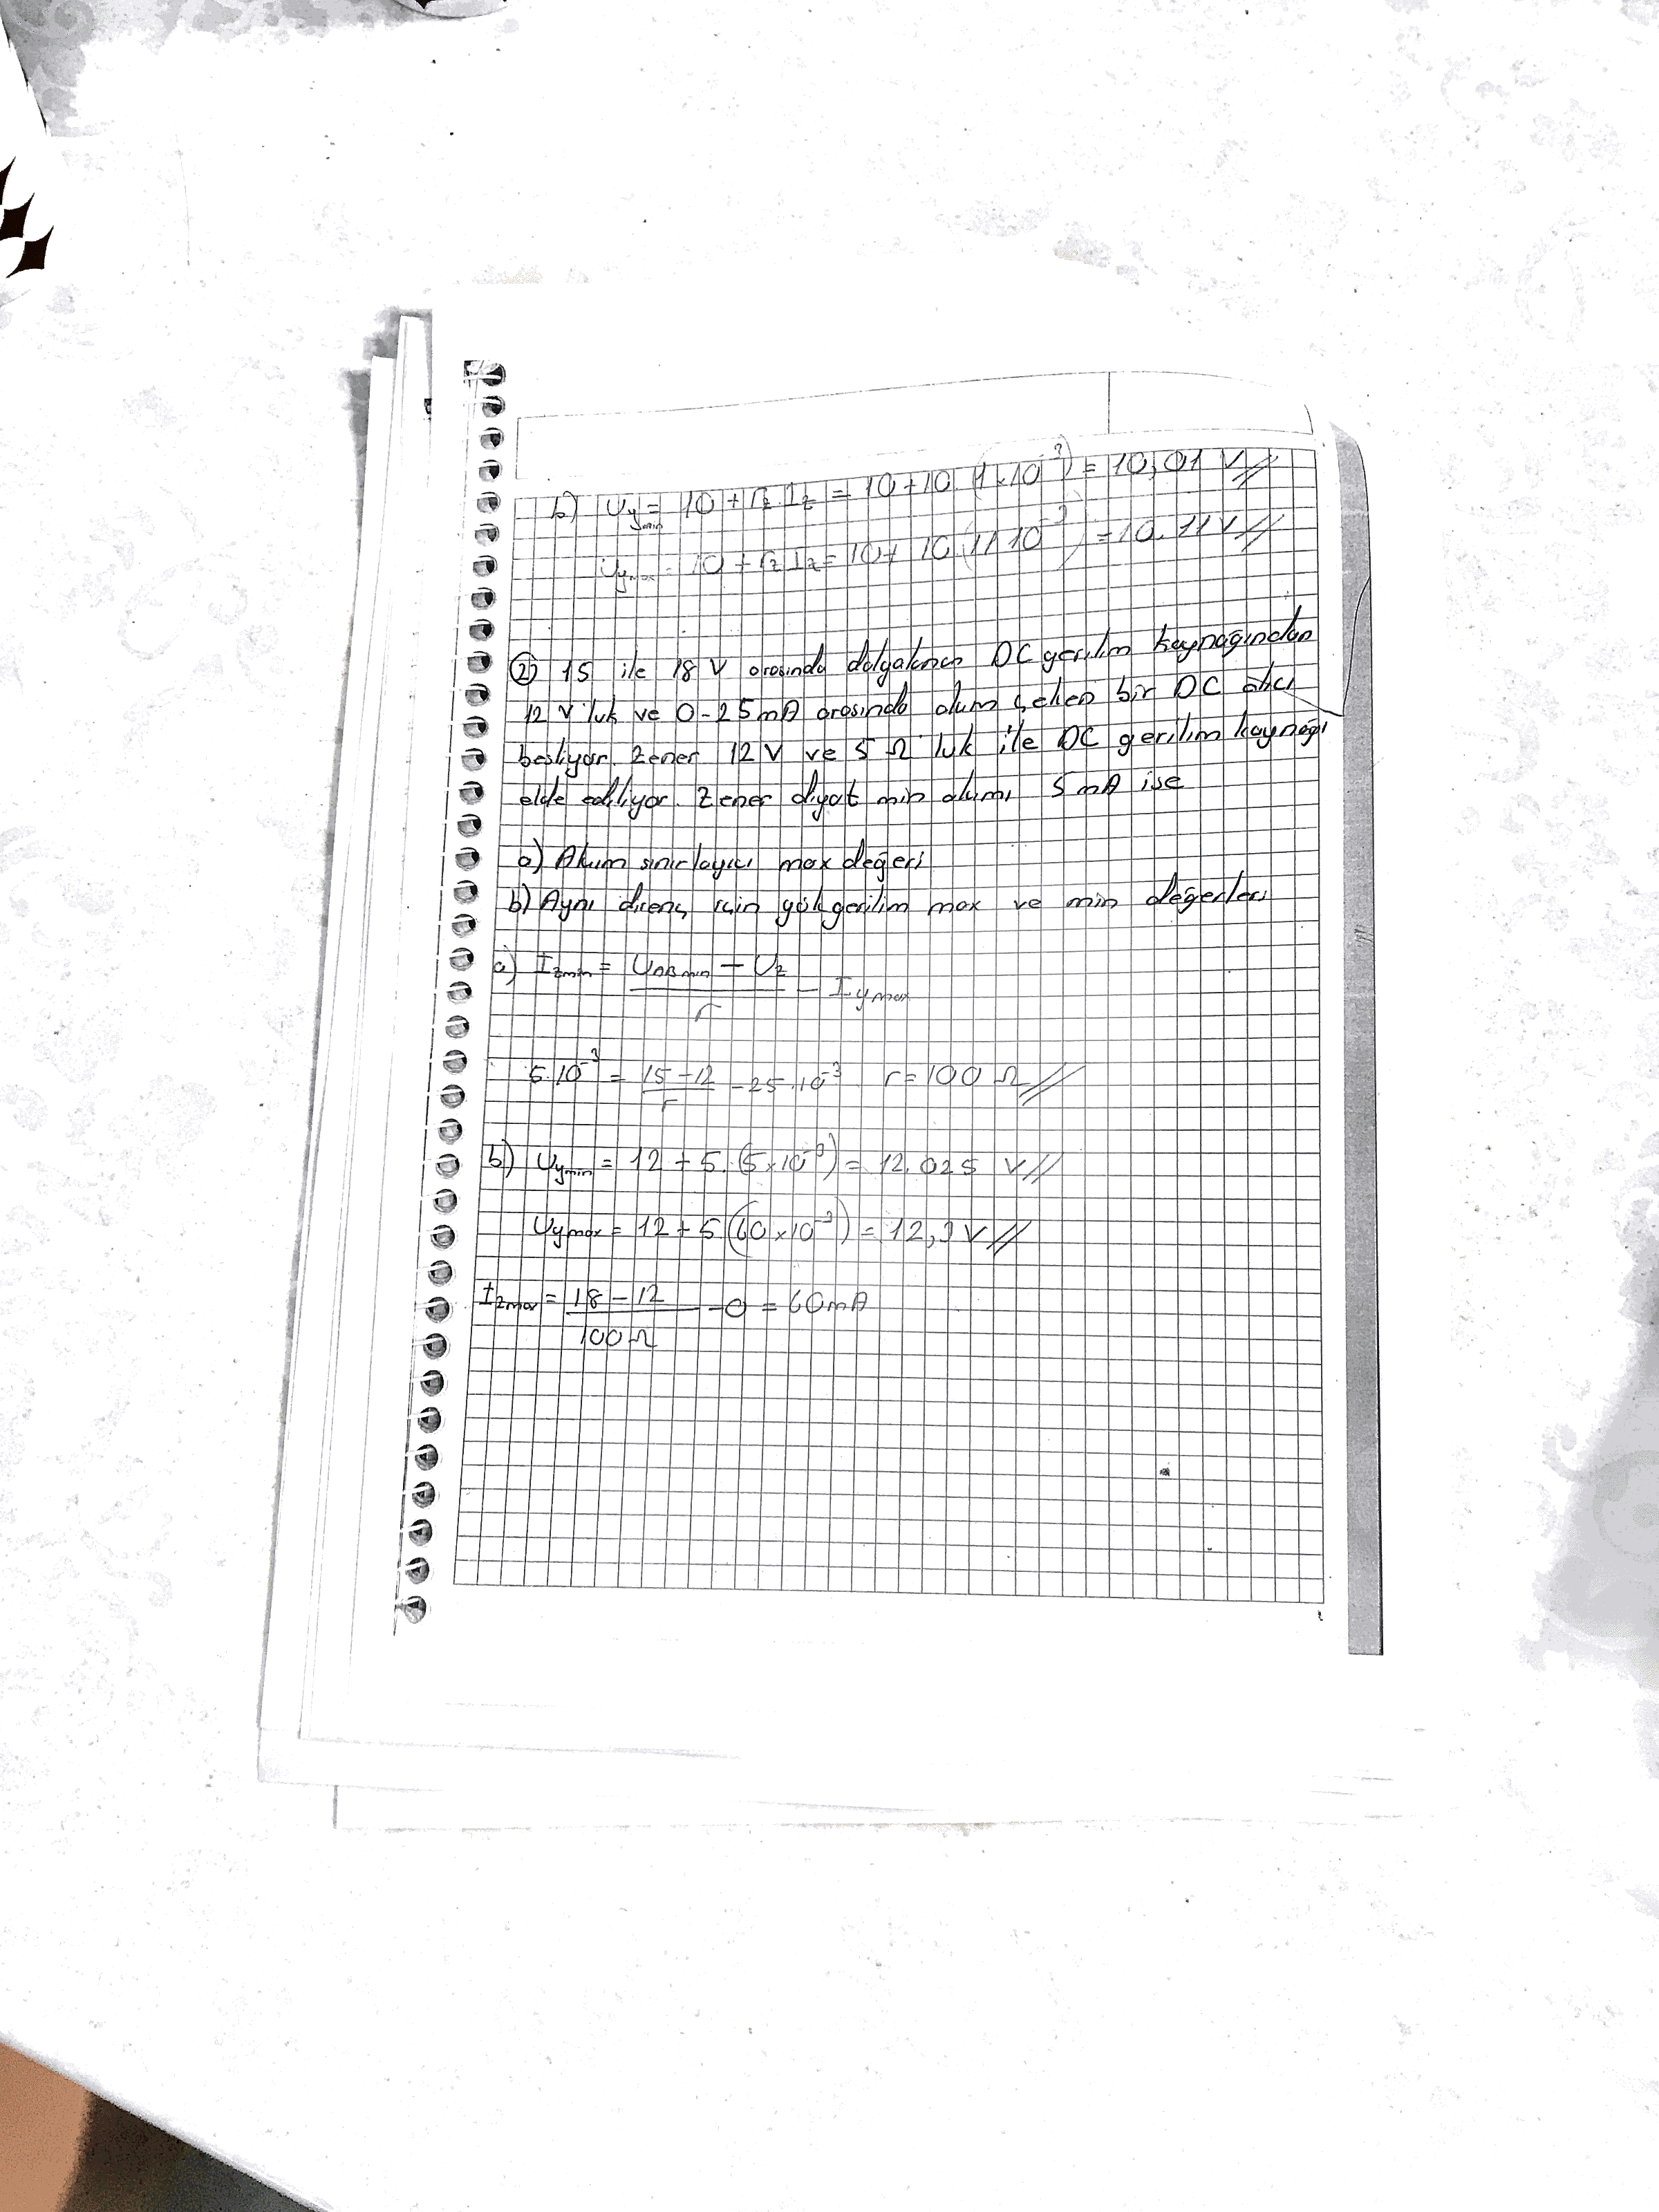 b) Uymin = 10 + rz.Iz = 10+10.(1x10⁻³) = 10,01 V//
Uymax = 10 + rz Iz = 10+ 10 (11 10⁻³) = 10.11V//
② 15 ile 18 V arasında dalgalanan DC gerilim kaynağından
12 V luk ve 0-25mA arasında akım çeken bir DC alıcı
besliyor. Zener 12 V ve 5 Ω luk ile DC gerilim kaynağı
elde ediliyor. Zener diyot min akımı 5 mA ise
a) Akım sınırlayıcı max değeri
b) Aynı direnç için yük gerilim max ve min değerleri
a) Izmin = (UABmin - Uz)/r - Iymax
5.10⁻³ = (15-12)/r - 25.10⁻³ r = 100 Ω//
b) Uymin = 12 + 5.(5x10⁻³) = 12.025 V//
Uymax = 12 + 5(60x10⁻³) = 12,3 V//
Izmax = (18-12)/100Ω - 0 = 60mA